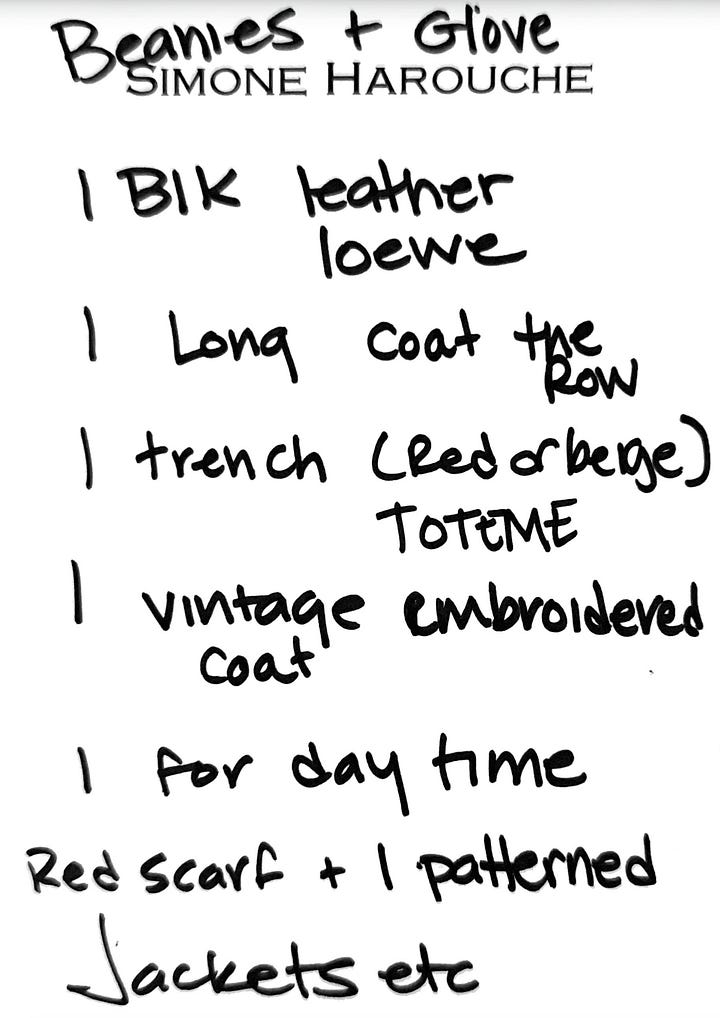 Beanies + Glove
SIMONE HAROUCHE
1 Blk leather
loewe
1 Long coat the
Row
1 trench (Red or beige)
TOTEME
1 vintage embroidered
coat
1 for day time
Red scarf + 1 patterned
Jackets etc